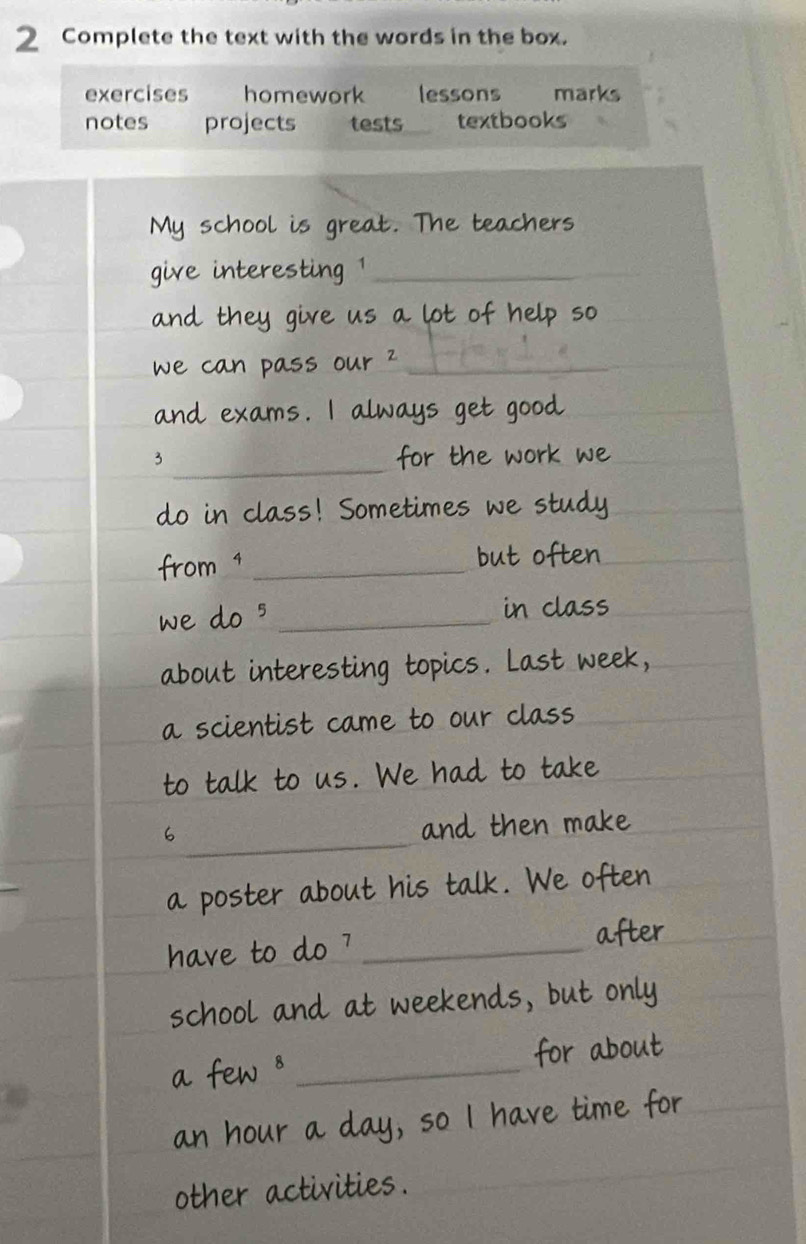 2 Complete the text with the words in the box.
exercises homework lessons marks
notes projects tests textbooks
My school is great. The teachers
give interesting 1 ____________
and they give us a lot of help so
we can pass our 2 ____________
and exams. I always get good
3 ____________ for the work we
do in class! Sometimes we study
from 4 ____________ but often
we do 5 ____________ in class
about interesting topics. Last week,
a scientist came to our class
to talk to us. We had to take
6 ____________ and then make
a poster about his talk. We often
have to do 7 ____________ after
school and at weekends, but only
a few 8 ____________ for about
an hour a day, so I have time for
other activities.